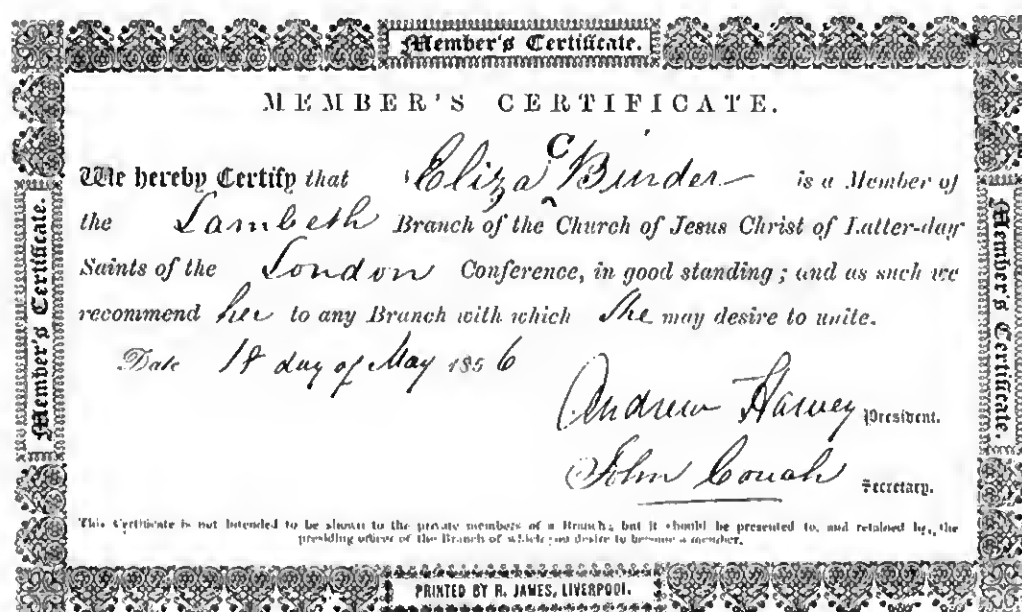 Member's Certificate.
MEMBER'S CERTIFICATE.
We hereby Certify that Eliza C Binder is a Member of
the Lambeth Branch of the Church of Jesus Christ of Latter-day
Saints of the London Conference, in good standing; and as such we
recommend her to any Branch with which She may desire to unite.
Date 18 day of May 1856
Andrew Harvey President.
John Couch Secretary.
This Certificate is not intended to be shown to the private members of a Branch, but it should be presented to, and retained by, the
presiding officer of the Branch of which you desire to become a member.
PRINTED BY R. JAMES, LIVERPOOL.
Member's Certificate.
Member's Certificate.